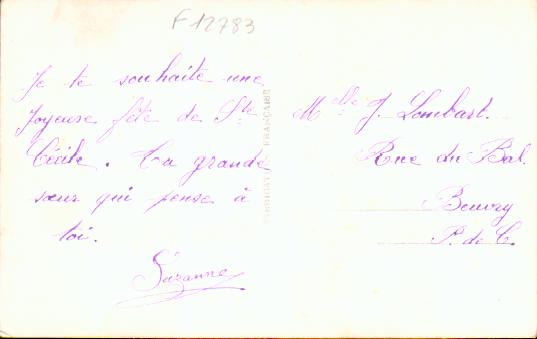 F 12783
Je te souhaite une
Joyeuse fête de Ste
Cécile. Ta grande
sœur qui pense à
toi.
Suzanne
FABRICATION FRANÇAISE
Melle J. Lombart.
Rue du Bal.
Beuvry
P. de C.